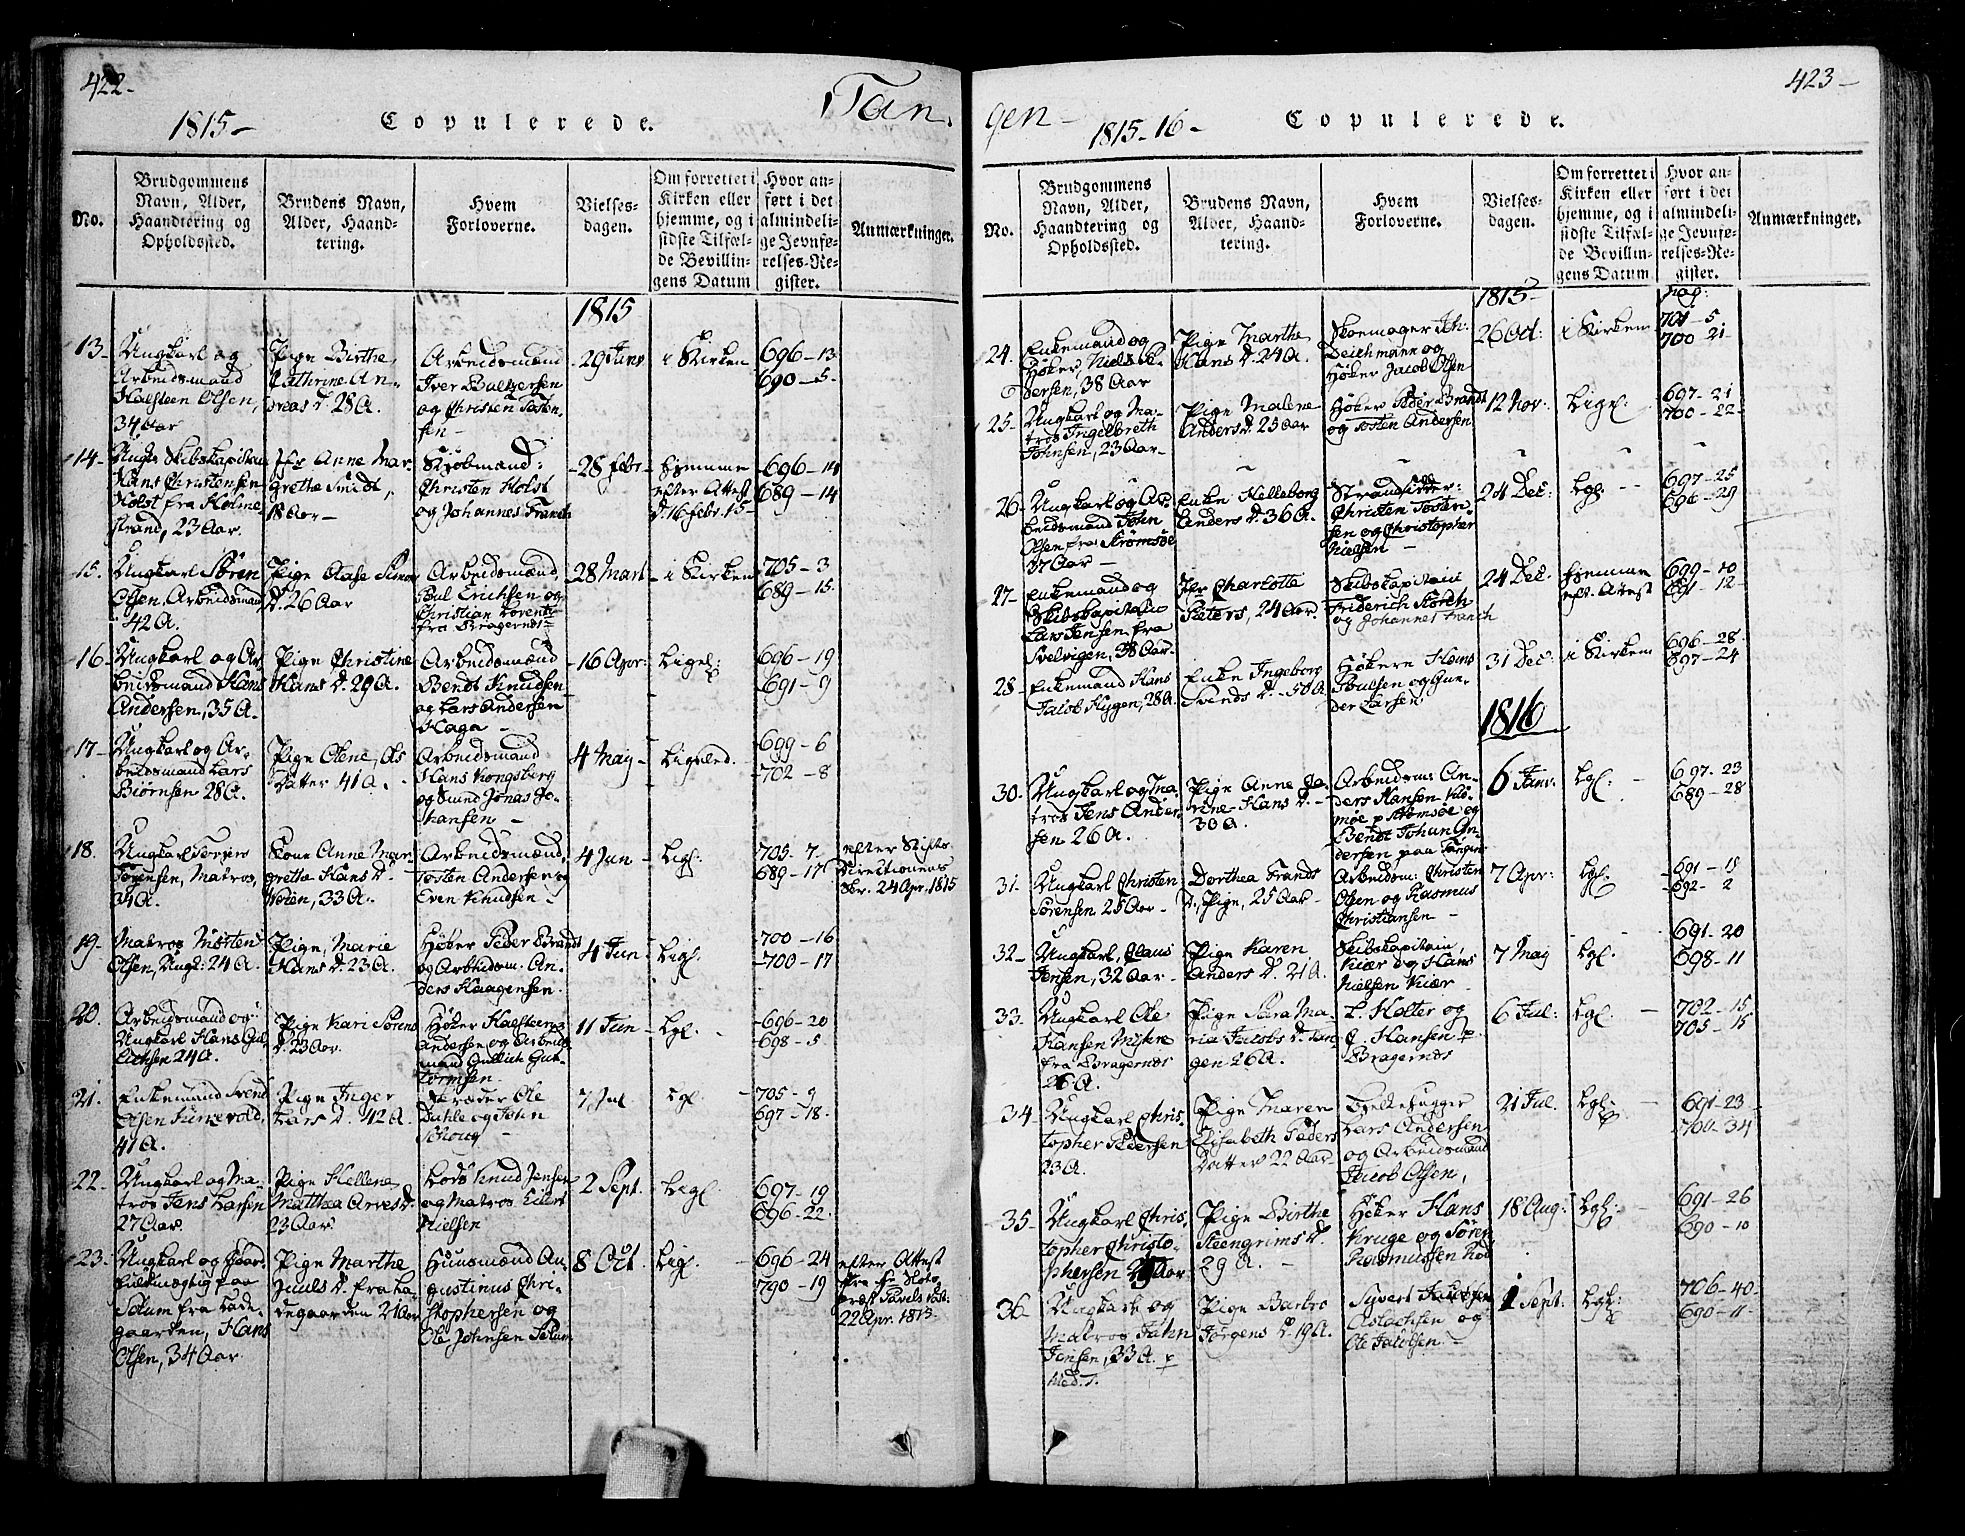 422-
Tan
1815-
Copulerede.
No.
Brudgommens
Navn, Alder,
Haandtering og
Opholdssted.
Brudens Navn,
Alder, Haand-
tering.
Hvem
Forloverne.
Vielses-
dagen.
Om forrettet i
Kirken eller
hjemme, og i
sidste Tilfæl-
de Bevillin-
gens Datum
Hvor an-
ført i det
almindeli-
ge Jevnfø-
relses-Re-
gister.
Anmærkninger.
1815
13-
Ungkarl og
Arbeidsmand
Halsteen Olsen,
34 Aar
Pige Birthe
Cathrine An-
dreas D. 28 A.
Arbeidsmænd
Iver Baltzersen
og Christen Tosten-
sen -
29 Janv
i Kirken
696-13
690-5-
14-
Ungk. Skibskapitain
Hans Christensen
Holst fra Holme-
strand, 23 Aar.
Jfr Anne Mar-
grethe Smidt,
18 Aar -
Kjøbmænd:
Christen Holst
og Johannes Tranch
28 Febr
hjemme
efter Attest
d. 16 Febr. 15-
696-14
689-14
15.
Ungkarl Sören
Olsen, Arbeidsmand
42 A.
Pige Aase Simon
D. 26 Aar
Arbeidsmænd
Poul Erichsen og
Christian Lorentz
fra Bragernes
28 Mart
i Kirken
705-3
689-15.
16-
Ungkarl og Ar-
beidsmand Hans
Andersen, 35 A.
Pige Christine
Hans D. 29 A.
Arbeidsmænd
Bendt Knudsen
og Lars Andersen
Haga -
16 Apr:
Ligel:
696-19
691-9
17-
Ungkarl og Ar-
beidsmand Lars
Biörnsen 28 A.
Pige Olene, Ols
Datter 41 A.
Arbeidsmænd
Hans Kongsberg
og Sund Jonas Jo-
hansen -
4 May
Ligeled.
699-6
702-8
18.
Ungkarl Torger
Törgensen, Matros,
34 A.
Kone Anne Mar-
grethe Hans D.
33 A.
Arbeidsmænd,
Tosten Andersen og
Even Knudsen -
4 Jun
Ligl:
705-7
689-17
efter Stifts-
Directionens
Br. 24 Apr. 1815
19-
Matros Morten
Olsen, Ungk: 24 A.
Pige, Marie
Hans D. 23 A.
Höker Peder Brandt
og Arbeidsm. An-
ders Haagensen.
4 Jun
Ligl.
700-16
700-17
20.
Arbeidsmand og
Ungkarl Hans Gul-
lichsen 24 A.
Pige Kari Sörens
D. 23 Aar.
Höker Halsteen
Andersen og Arbeids-
mand Gullich Gut-
tormsen.
11 Jun
Lgl.
696-20
698-5
21.
Enkemand Svend
Olsen
41 A.
Pige Inger
Lars D. 42 A.
Skræder Ole
Dahle og John
Schoug -
7 Jul
Lgl.
705-9
697-18.
22.
Ungkarl og Ma-
tros Jens Larsen
27 Aar.
Pige Hellene
Matthea Arves D.
23 Aar.
Lods Knud Jensen
og Matros Eilert
Nielsen
2 Sept.
Ligl.
697-19
696-22.
23.
Ungkarl og Gaard-
fuldmægtig paa
Solum fra Lade-
gaarden, Hans
Olsen, 34 Aar.
Pige Marthe
Juuls D. fra La-
degaarden 21 Aar
Huusmænd Au-
gustinus Chri-
stophersen og
Ole Johnsen Solum
8 Oct.
Ligl.
696-24
790-19
efter Attest
fra Hr Slots-
præst Pavels
22 Apr. 1815.
423-
gen-
1815-16-
Copulerede.
No.
Brudgommens
Navn, Alder,
Haandtering og
Opholdssted.
Brudens Navn,
Alder, Haand-
tering.
Hvem
Forloverne.
Vielses-
dagen.
Om forrettet i
Kirken eller
hjemme, og i
sidste Tilfæl-
de Bevillin-
gens Datum
Hvor an-
ført i det
almindeli-
ge Jevnfø-
relses-Re-
gister.
Anmærkninger.
1815-
pag:
24.
Enkemand og
Höker, Niels Pe-
dersen, 38 Aar
Pige Marthe
Hans D. 24 A.
Skoemager Joh:
Deichmann og
Höker Jacob Olsen
26 Oct:
i Kirken
701-5.
700-21
25-
Ungkarl og Ma-
tros Ingelbreth
Johnsen, 23 Aar-
Pige Malene
Anders D. 23 Aar
Höker Peder Brandt
og Tosten Andersen
12 Nov:
Ligl:
697-21
700-22-
26-
Ungkarl og Ar-
beidsmand John
Olsen fra Strömsöe
37 Aar -
Enke Helleborg
Anders D. 36 A.
Strandsidder:
Christen Tosten-
sen og Christopher
Nielsen -
24 Dec:
Lgl.
697-25
696-29
27-
Enkemand og
Skibskapitain
Lars Jensen fra
Svelvigen, 38 Aar.
Jfr Charlotte
Peters, 24 Aar
Skibskapitain
Friderich Storch
og Johannes Tranch
24 Dec:
hjemme
eft. Attest
699-10
691-12-
28-
Enkemand Hans
Jacob Flygen, 28 A.
Enke Ingeborg
Svends D. - 50 A
Hökere Hans
Poulsen og Gun-
der Larsen
31 Dec:
i Kirken
696-28
697-24
1816
30.
Ungkarl og Ma-
tros Jens Ander-
sen 26 A.
Pige Anne
Hans D. -
30 A.
Arbeidsm: An-
ders Hansen
p Strömsöe og
Bendt Johan An-
dersen paa Tangen
6 Janv:
Lgl:
697-23
689-28
31-
Ungkarl Christen
Sörensen 25 Aar -
Dorthea Frands
D. Pige, 25 Aar -
Arbeidsm: Christen
Olsen og Rasmus
Christiansen -
7 Apr:
Lgl:
691-15
692-2
32-
Ungkarl, Claus
Jensen, 32 Aar -
Pige Karen
Anders D. 21 A.
Skibskapitain,
Kiær og Hans
Nielsen Kiær
7 May
Lgl.
691-20
698-11
33-
Ungkarl Ole
Hansen Myhre
fra Bragernes
26 A.
Pige Sara Ma-
ria Jacobs D. Tan-
gen 26 A.
L. Holter og
J. Hansen p
Bragernes
6 Jul:
Lgl.
702-15
705-15
34-
Ungkarl Chris-
topher Pedersen
23 A.
Pige Maren
Elisabeth Peders
Datter 22 Aar
Lars Andersen
og Arbeidsmand
Jacob Olsen,
21 Jul.
Lgl:
691-23
700-34
35-
Ungkarl Chris-
topher Christo-
phersen 29 Aar
Pige Birthe
Steengrims D.
29 A. -
Höker Hans
Kruge og Sören
Rasmussen
18 Aug:
Lgl:
691-26
690-10
36-
Ungkarl og
Matros John
Jensen, 33 A. p
Ned. T.
Pige Barbro
Jörgens D. 19 A.
Syvert Jacobsen
Aslachsen og
Ole Jacobsen -
1 Sept:
Lgl:
706-40
690-11-